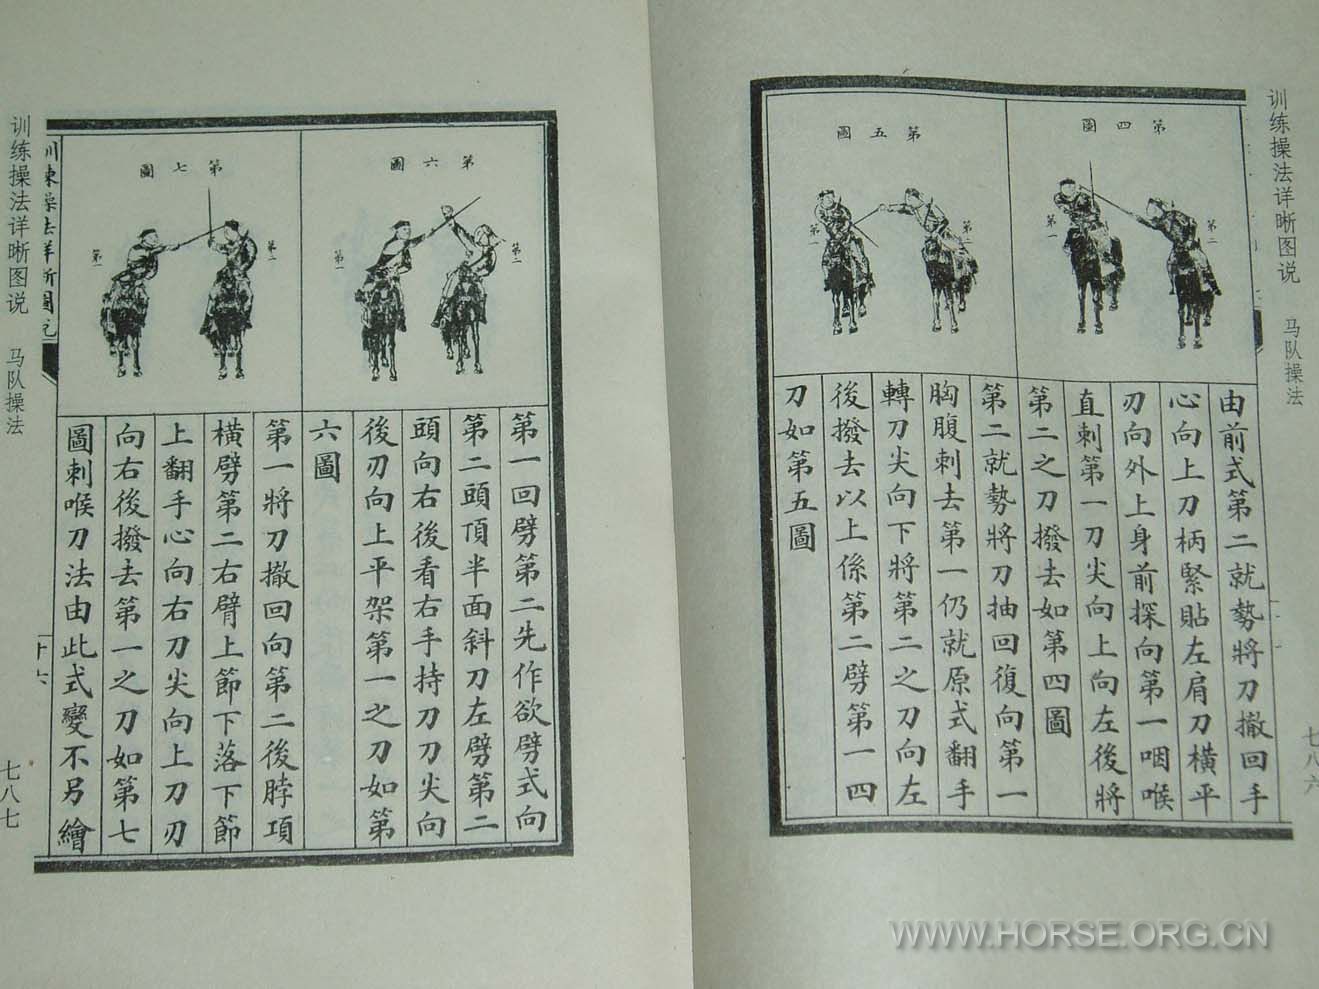 训练操法详晰图说　马队操法
七八六
第四圖
第一
第二
第五圖
第一
第二
由前式第二就勢將刀撤回手
心向上刀柄緊貼左肩刀橫平
刃向外上身前探向第一咽喉
直刺第一刀尖向上向左後將
第二之刀撥去如第四圖
第二就勢將刀抽回復向第一
胸腹刺去第一仍就原式翻手
轉刀尖向下將第二之刀向左
後撥去以上係第二劈第一四
刀如第五圖
第六圖
第一
第二
第七圖
第一
第二
第一回劈第二先作欲劈式向
第二頭頂半面斜刀左劈第二
頭向右後看右手持刀刀尖向
後刃向上平架第一之刀如第
六圖
第一將刀撤回向第二後脖項
橫劈第二右臂上節下落下節
上翻手心向右刀尖向上刀刃
向右後撥去第一之刀如第七
圖刺喉刀法由此式變不另繪
訓練操法詳晰圖說
十六
训练操法详晰图说　马队操法
七八七
WWW.HORSE.ORG.CN